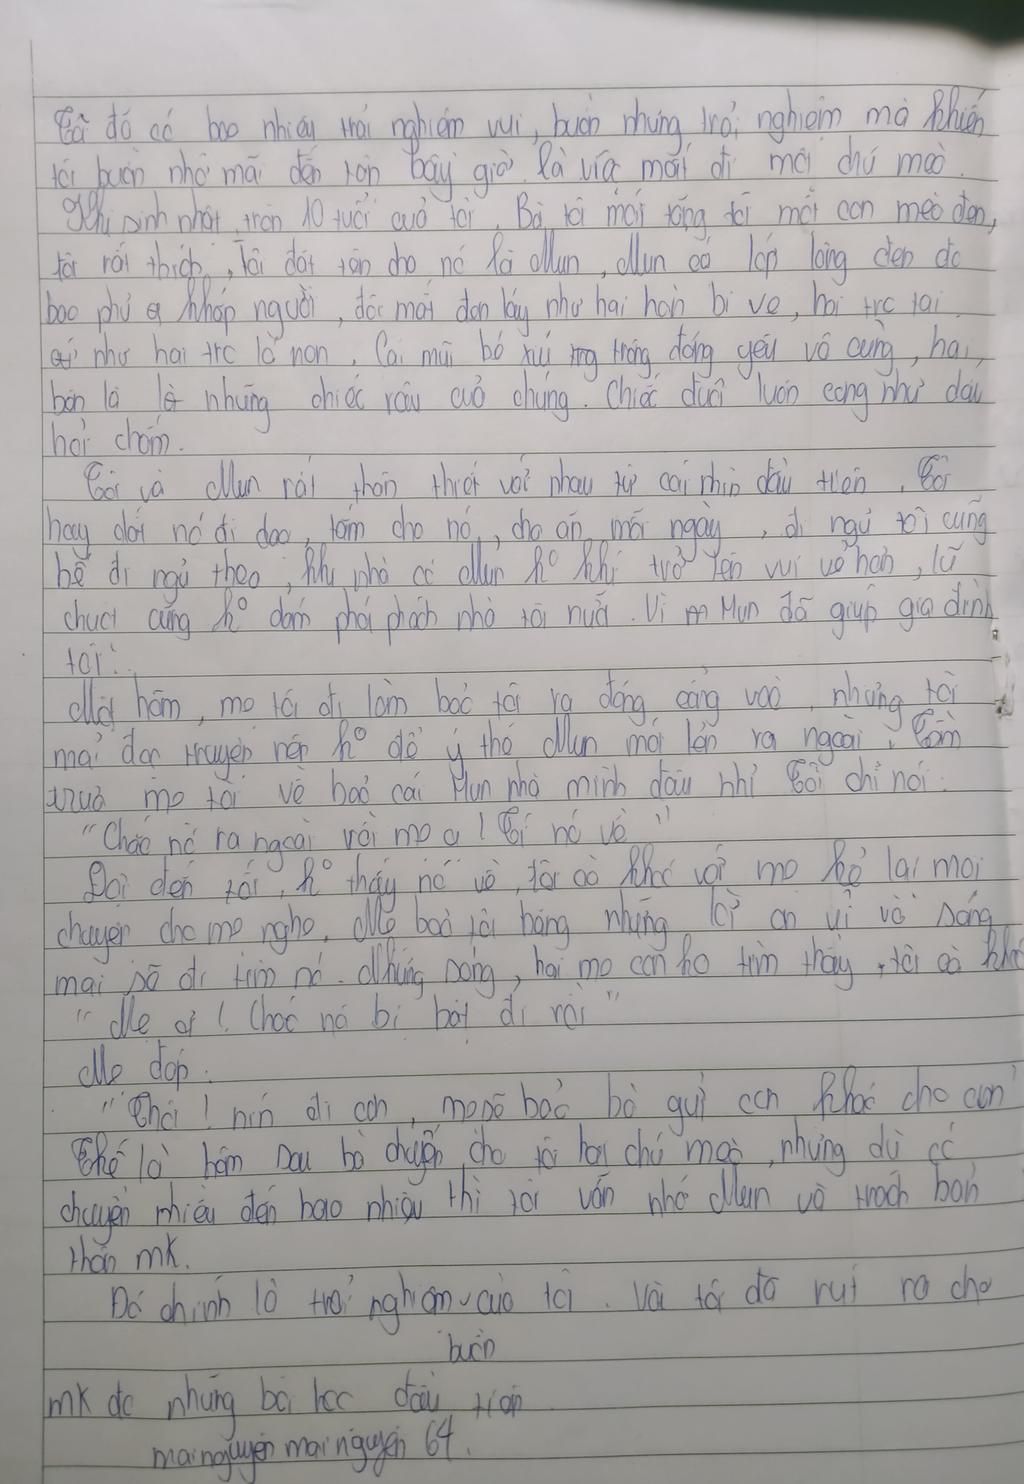 Tôi đó có bao nhiêu trải nghiệm vui, buồn nhưng trải nghiệm mà khiến
tôi buồn nhớ mãi đến tận bây giờ là việc mất đi một chú mèo.
Khi sinh nhật tròn 10 tuổi của tôi. Bà tôi mới tặng tôi một con mèo đen,
tôi rất thích, Tôi đặt tên cho nó là Mun, Mun có lớp lông đen
bao phủ khắp người, đôi mắt đen láy như hai hòn bi ve, hai tai
như hai lá non. Cái mũi bé xíu trông đáng yêu vô cùng, hai
bên là những chiếc râu của chúng. Chiếc đuôi luôn cong như dấu
hỏi chấm.
Tôi và Mun rất thân thiết với nhau từ cái nhìn đầu tiên. Tôi
hay dắt nó đi dạo, tắm cho nó, cho ăn mỗi ngày, đi ngủ tôi cũng
bế đi ngủ theo, khi nhà có Mun k° khí trở lên vui vẻ hơn, lũ
chuột cũng k° dám phá phách nhà tôi nữa. Vì Mun đã giúp gia đình
tôi.
Một hôm, mẹ tôi đi làm bảo tôi ra đóng cổng vào, nhưng tôi
mải đọc truyện nên k° để ý thế Mun mới lẻn ra ngoài. Tầm
trưa mẹ tôi về bảo cái Mun nhà mình đâu nhỉ Tôi chỉ nói:
"Chắc nó ra ngoài với mẹ ạ! Tí nó về"
Đợi đến tối, k° thấy nó về, tôi oà khóc với mẹ kể lại mọi
chuyện cho mẹ nghe. Mẹ bảo tôi bằng những lời an ủi và sáng
mai sẽ đi tìm nó. Những sáng, hai mẹ con ko tìm thấy, tôi oà khóc
"Mẹ ơi! Chắc nó bị bắt đi rồi"
Mẹ đáp:
"Thôi! nín đi con, mẹ sẽ bảo bà gửi con khác cho con"
Thế là hôm sau bà chuyển cho tôi hai chú mèo, nhưng dù có
chuyển nhiều đến bao nhiêu thì tôi vẫn nhớ Mun và trách bản
thân mk.
Đó chính là trải nghiệm buồn của tôi. Và tôi đã rút ra cho
mk đc những bài học đầu tiên
mai nguyên mai nguyên 64.